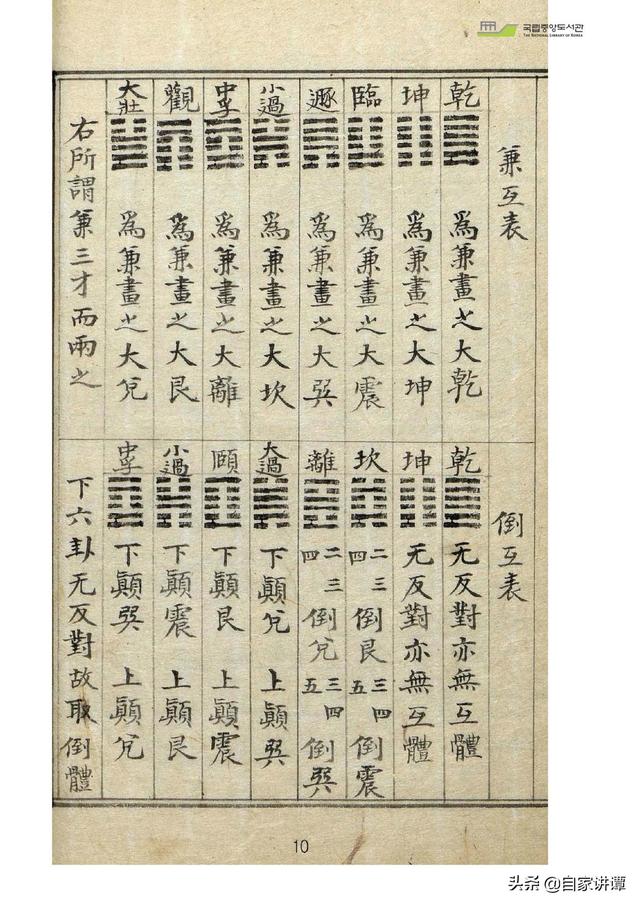 국립중앙도서관
THE NATIONAL LIBRARY OF KOREA
兼互表
乾 爲兼畫之大乾
坤 爲兼畫之大坤
臨 爲兼畫之大震
遯 爲兼畫之大巽
小過 爲兼畫之大坎
中孚 爲兼畫之大離
觀 爲兼畫之大艮
大壯 爲兼畫之大兌
右所謂兼三才而兩之
倒互表
乾 无反對亦無互體
坤 无反對亦無互體
坎 二三四 倒艮 三四五 倒震
離 二三四 倒兌 三四五 倒巽
大過 下顚兌 上顚巽
頤 下顚艮 上顚震
小過 下顚震 上顚艮
中孚 下顚巽 上顚兌
下六卦无反對故取倒體
10
头条 @自家讲谭